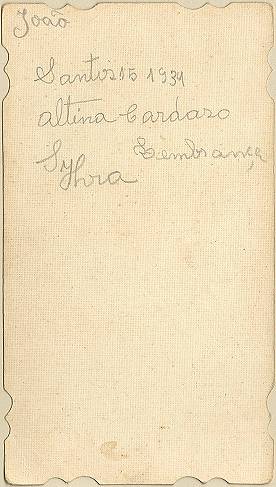 João
Santos 15 1931
Altina Cardazo
Lembrança
Sylvia